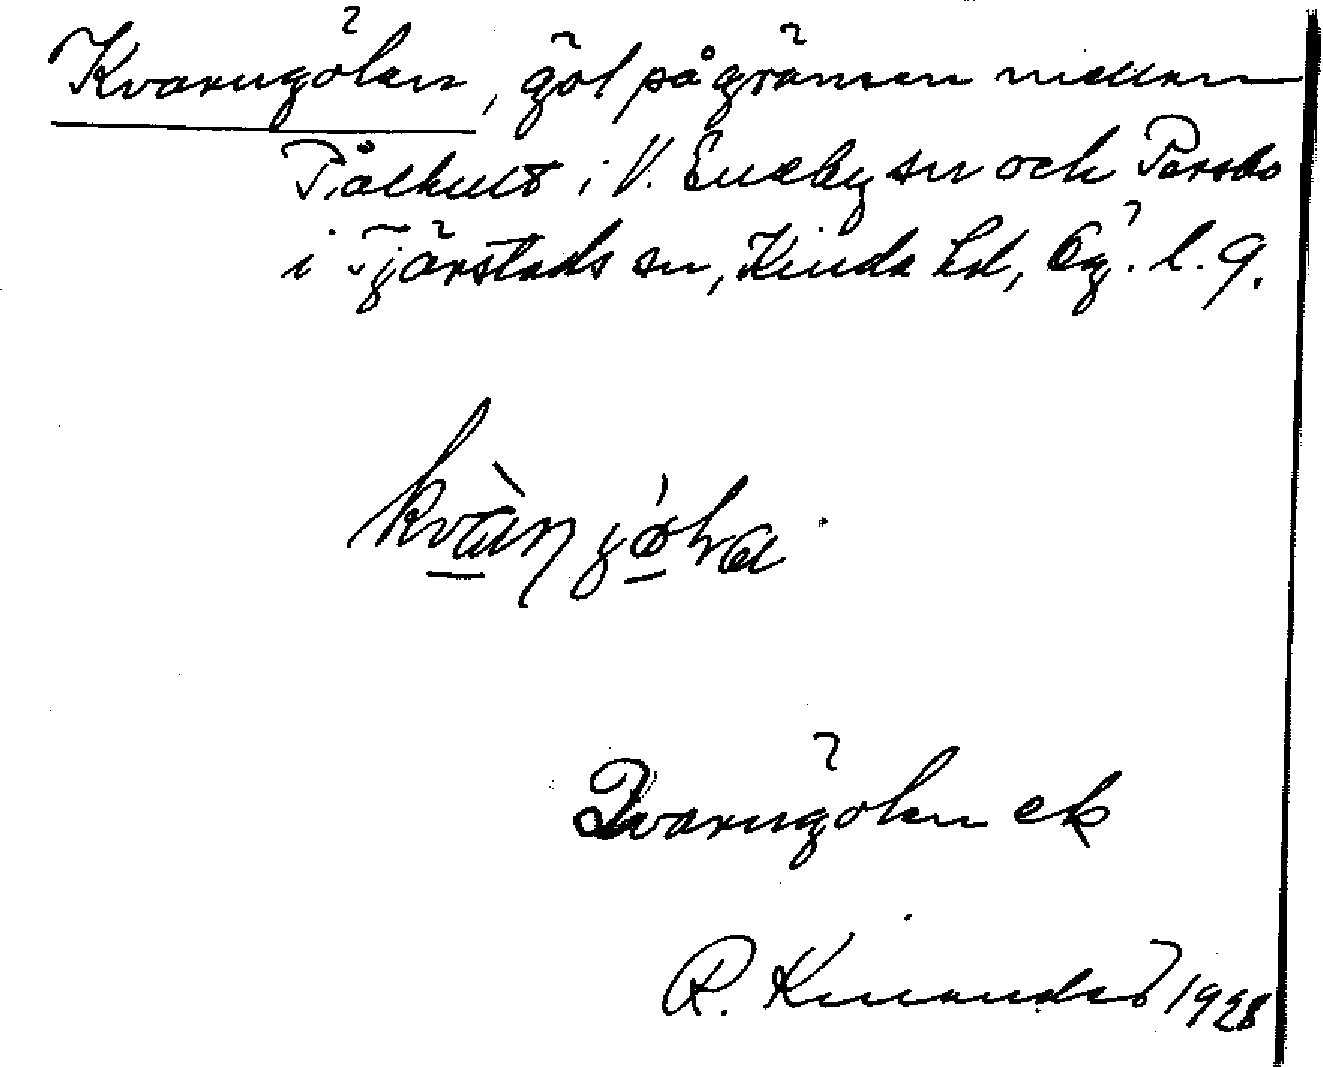 Kvarngölen, göl på gränsen mellan
Pålhult i V. Eneby sn och Persbo
i Tjärstads sn, Kinda hd, Ög. l. 9.
Qvarngölen ek
R. 1928